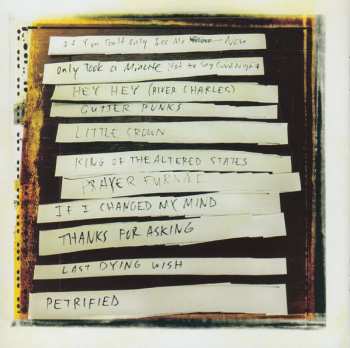 If You Could Only See Me Now
Only Took a Minute Not to Say Good Night
HEY HEY (RIVER CHARLES)
GUTTER PUNKS
LITTLE CROWN
KING OF THE ALTERED STATES
PRAYER FURNACE
IF I CHANGED MY MIND
THANKS FOR ASKING
LAST DYING WISH
PETRIFIED